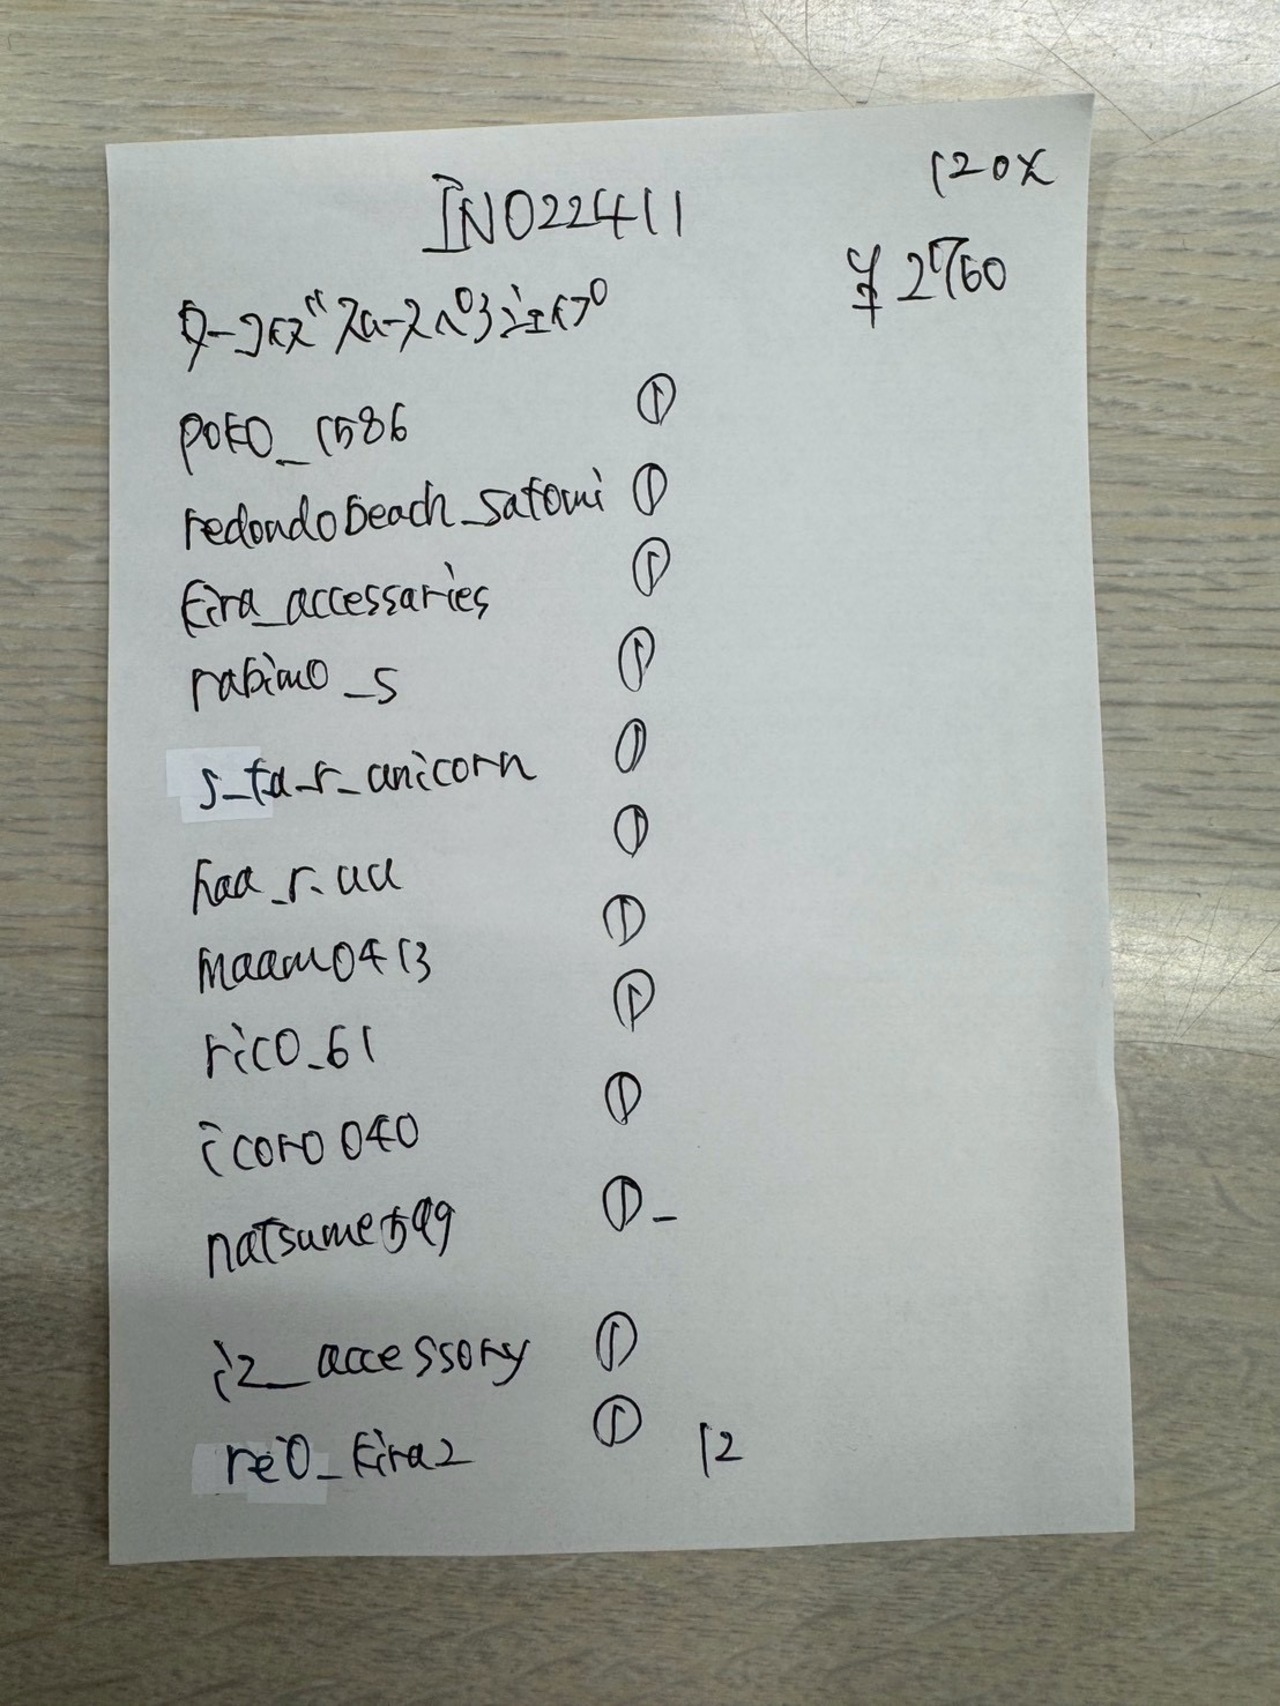 INO22411
120X
¥2760
ターコイズ スペーサー チップ
poko_1586 ①
redondobeach_satomi ①
kira_accessaries ①
rabimo_s ①
s_ta_r_unicorn ①
haa_r.uu ①
maamo413 ①
rico_61 ①
icoro040 ①
natsume599 ①_
iz_accessory ①
reo_kira2 ① 12